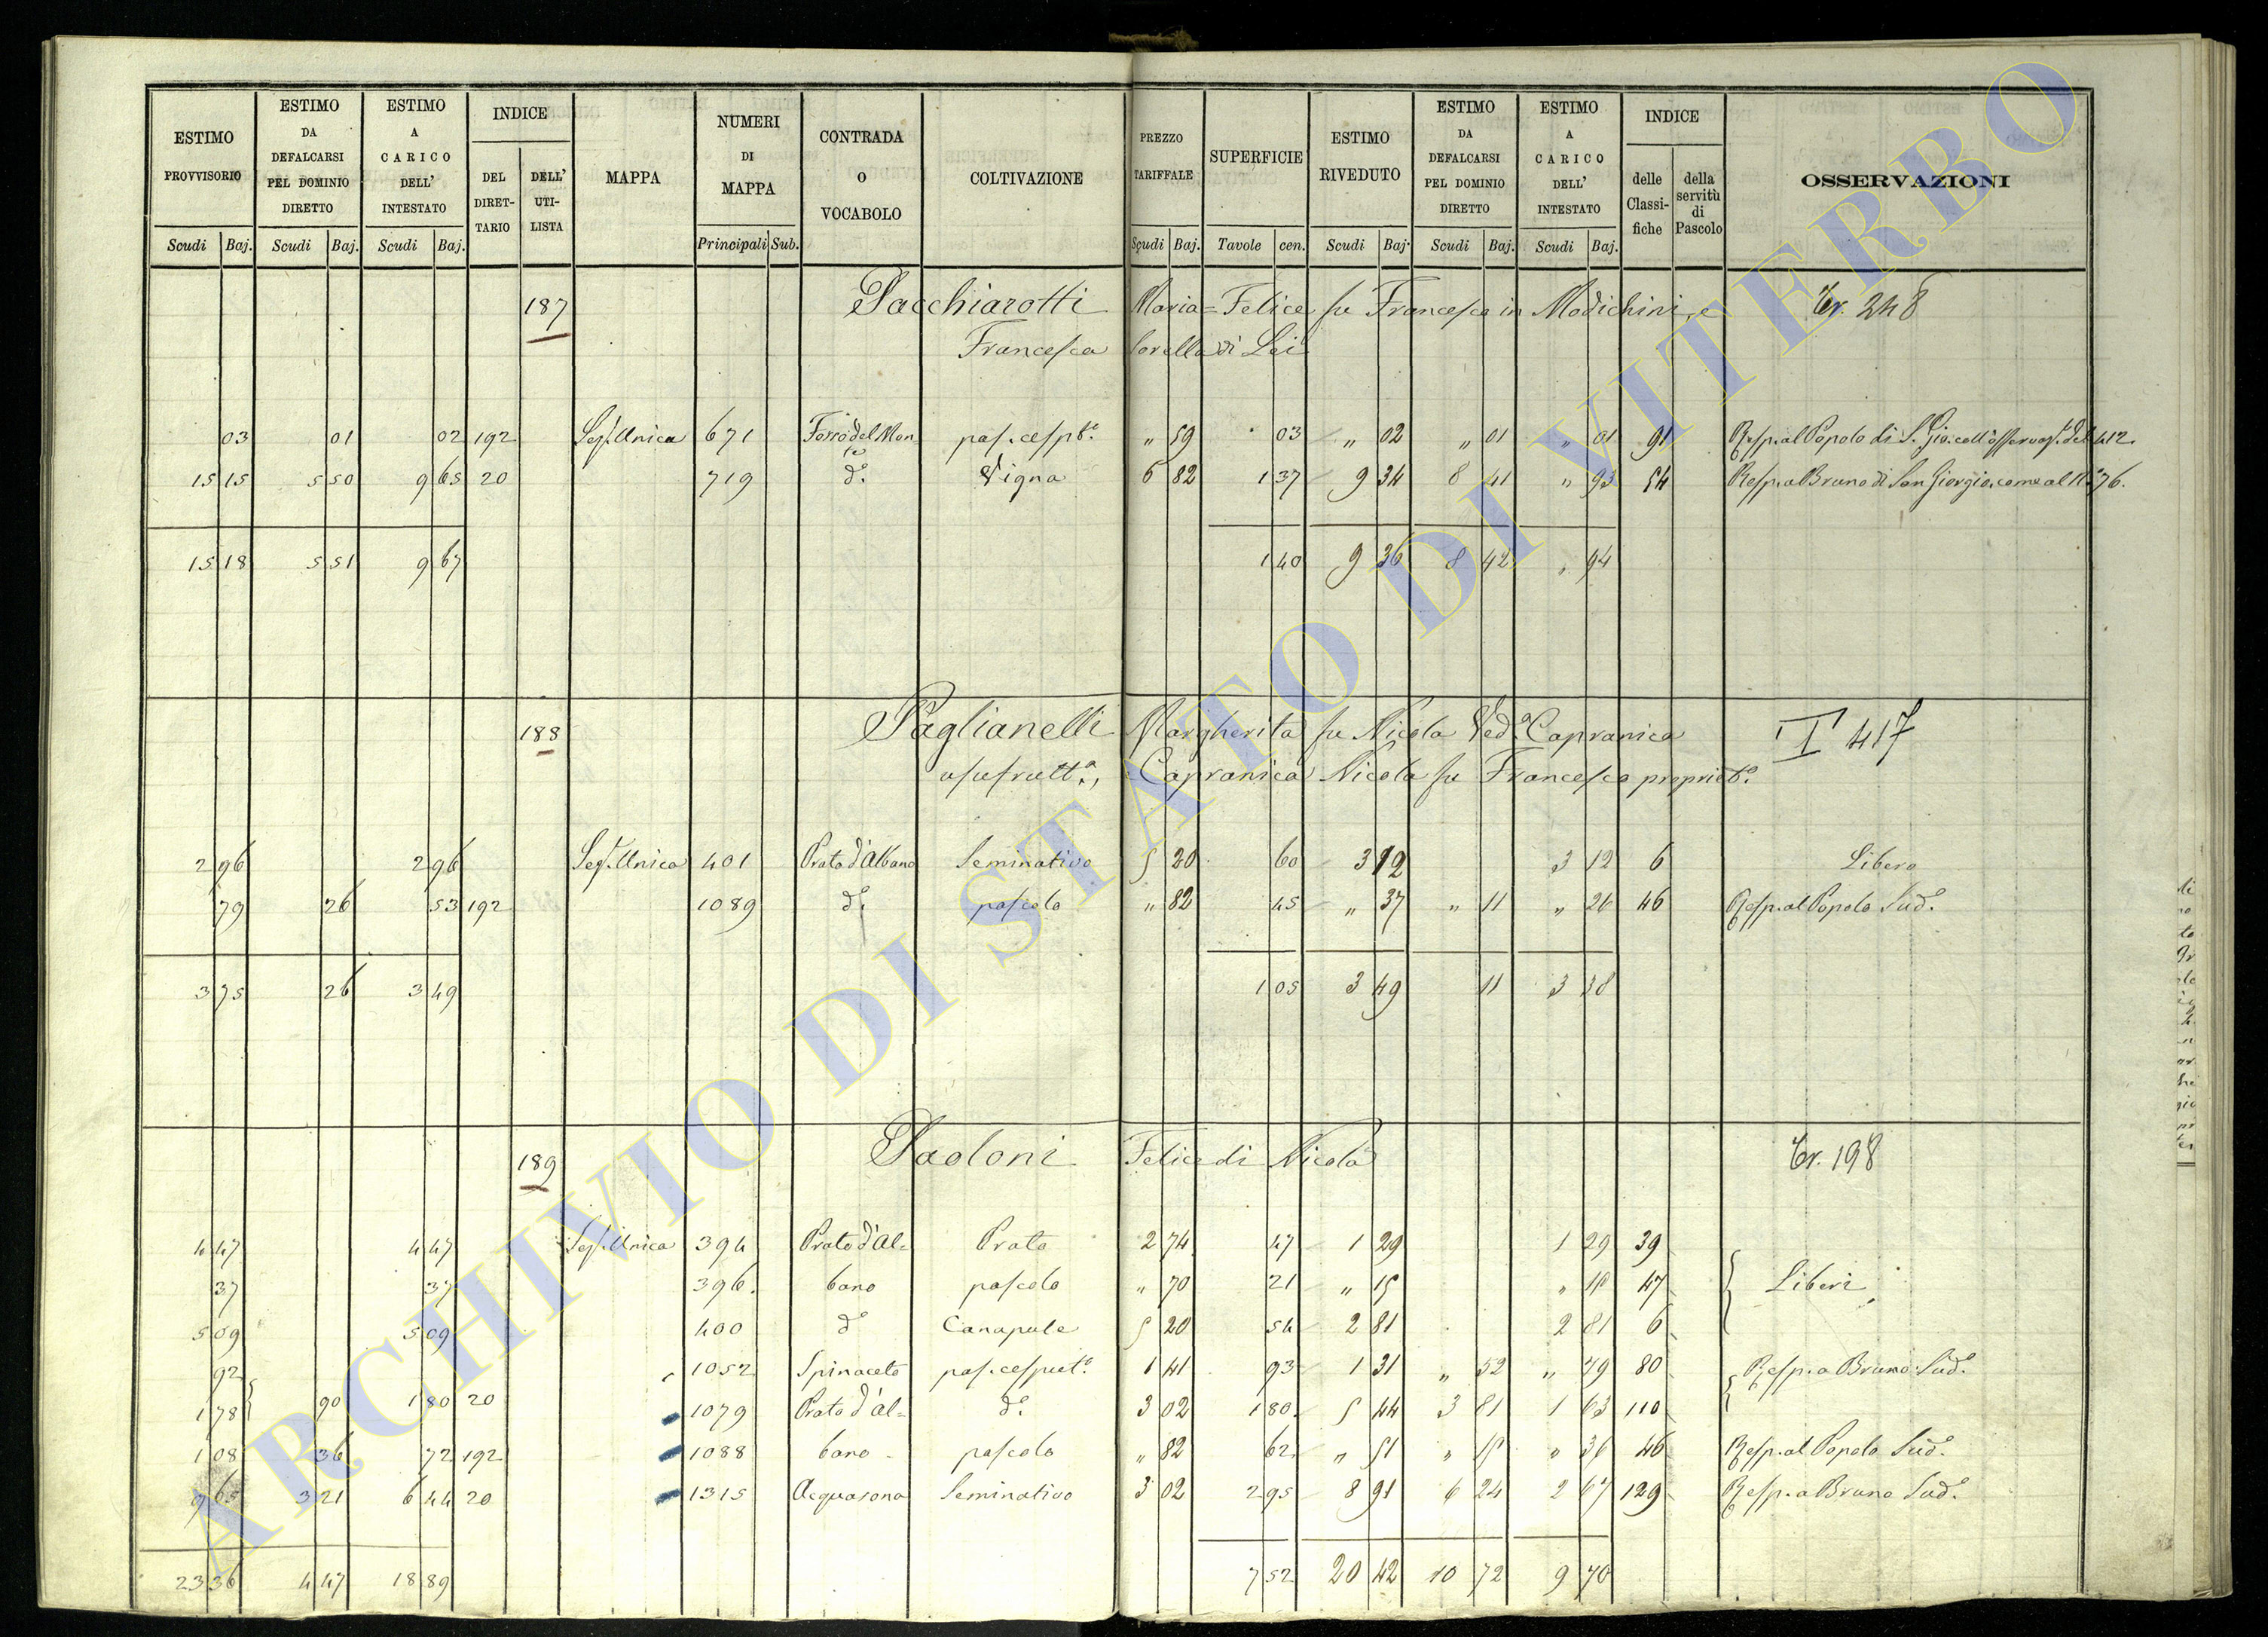 ESTIMO PROVVISORIO Scudi Baj. ESTIMO DA DEFALCARSI PEL DOMINIO DIRETTO Scudi Baj. ESTIMO A CARICO DELL' INTESTATO Scudi Baj. INDICE DEL DIRET-TARIO DELL' UTI-LISTA MAPPA NUMERI DI MAPPA Principali Sub. CONTRADA O VOCABOLO COLTIVAZIONE PREZZO TARIFFALE Scudi Baj. SUPERFICIE Tavole cen. ESTIMO RIVEDUTO Scudi Baj. ESTIMO DA DEFALCARSI PEL DOMINIO DIRETTO Scudi Baj. ESTIMO A CARICO DELL' INTESTATO Scudi Baj. INDICE delle Classi-fiche della servitù di Pascolo OSSERVAZIONI
187 Pacchiarotti Maria=Felice fu Francesco in Modichini, e Tr. 248
Francesca sorella di Lei
03 01 02 192 Sez. Unica 671 Fosso del Mon te pas. cesp.to „ 59 03 „ 02 „ 01 „ 01 91 Resp. al Popolo di S. Gio. coll'osservaz. del 412.
15 15 5 50 9 65 20 719 d.o Vigna 6 82 1 37 9 34 8 41 „ 93 54 Resp. a Bruno di San Giorgio, come al N.o 76.
15 18 5 51 9 67 1 40 9 36 8 42 „ 94
188 Paglianelli Margherita fu Nicola Ved.a Capranica T 417
usufrutt.a, Capranica Nicola fu Francesco propriet.o
2 96 2 96 Sez. Unica 401 Prato d'Albano Seminativo 5 20 60 3 12 3 12 6 Libero
79 26 53 192 1089 d.o pascolo „ 82 45 „ 37 „ 11 „ 26 46 Resp. al Popolo Sud.o
3 75 26 3 49 1 05 3 49 11 3 38
189 Paoloni Felice di Nicola Tr. 198
4 47 4 47 Sez. Unica 394 Prato d'Al= Prato 2 74 47 1 29 1 29 39
37 37 396. bano pascolo „ 70 21 „ 15 „ 15 47 Liberi
5 09 5 09 400 d.o Canapule 5 20 54 2 81 2 81 6
92 1052 Spinaceto pas. cesput.o 1 41 93 1 31 „ 52 „ 79 80 Resp. a Bruno Sud.o
1 78 90 1 80 20 1079 Prato d'Al= d.o 3 02 1 80 5 44 3 81 1 63 110
1 08 36 72 192 1088 bano pascolo „ 82 62 „ 51 „ 15 „ 36 46 Resp. al Popolo Sud.o
9 65 3 21 6 44 20 1315 Acquasona Seminativo 3 02 2 95 8 91 6 24 2 67 129 Resp. a Bruno Sud.o
23 36 4 47 18 89 7 52 20 42 10 72 9 70
ARCHIVIO DI STATO DI VITERBO